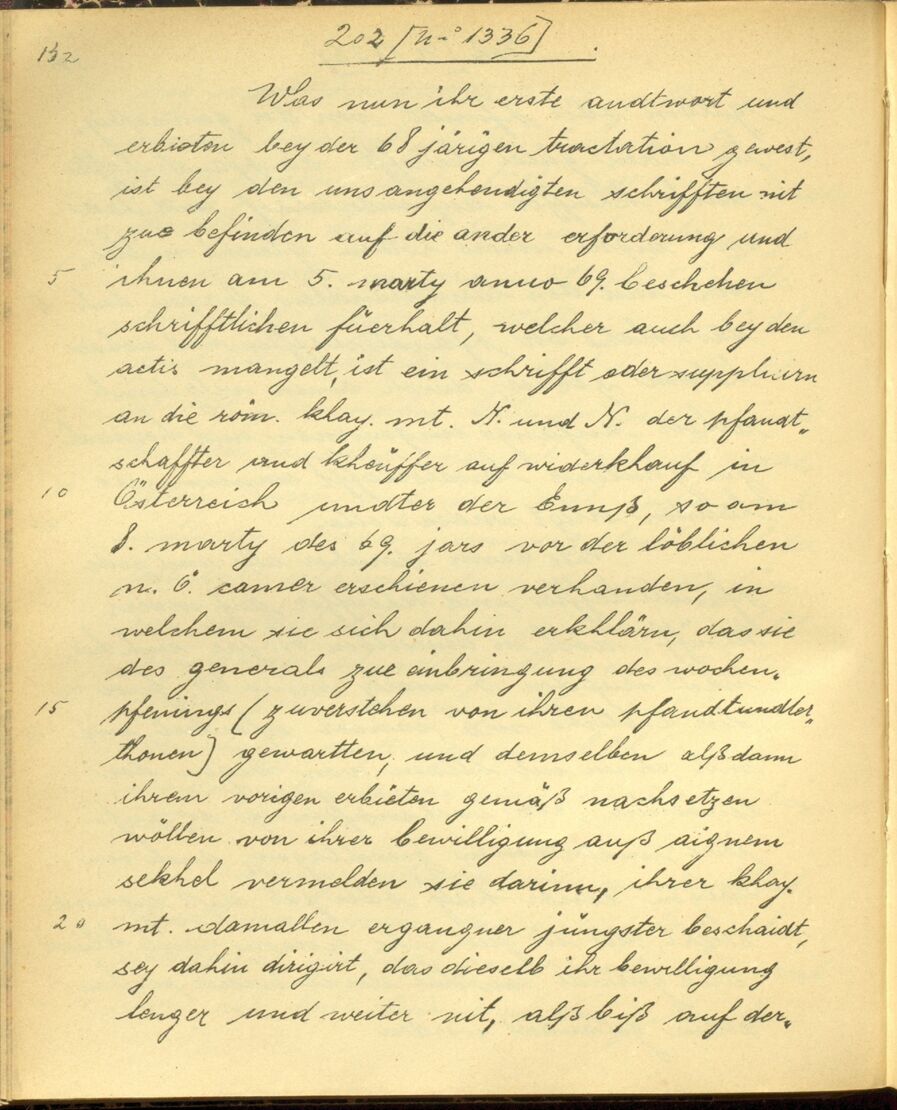 202 [N-o 1336]
132
Was nun ihr erste andtwort und
erbieten bey der 68 järigen tractation gewest,
ist bey den uns angehendigten schrifften nit
zue befinden auf die ander erforderung und
5 ihnen am 5. marty anno 69. beschehen
schrifftlichen füerhalt, welcher auch bey den
actis mangelt, ist ein schrifft oder
an die röm. khay. mt. N. und N. der pfandt„
schaffter und kheüffer auf widerkhauf in
10 Österreich undter der Ennß, so am
8. marty des 69. jars vor der löblichen
n. ö. camer erschienen verhanden, in
welchem sie sich dahin erkhlärn, das sie
des generals zue einbringung des wochen„
15 pfenings (zuverstehen von ihren pfandtundter„
thonen) gewartten, und demselben alßdann
ihrem vorigen erbieten gemäß nachsetzen
wöllen von ihrer bewilligung auß aignem
sekhel vermelden sie darinn, ihrer khay.
20 mt. damallen ergangner jüngster beschaidt,
sey dahin dirigirt, das dieselb ihr bewilligung
lenger und weiter nit, alß biß auf der„